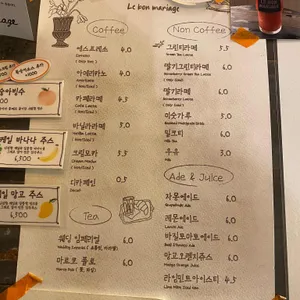 Le bon mariage
Coffee
에스프레소 4.0
Espresso
아메리카노 4.0
Americano
카페라떼 4.5
Cafe Latte
바닐라라떼 5.0
Vanilla Latte
크림모카 5.5
Cream Mocha
디카페인 0.5
Decaf
Tea
웨딩 임페리얼 6.0
마르코 폴로 6.0
Non Coffee
그린티라떼 5.5
Green Tea Latte
딸기그린티라떼 6.0
Strawberry Green Tea Latte
딸기라떼 6.0
Strawberry Latte
미숫가루 5.0
밀크티 6.0
Milk Tea
우유 3.0
Milk
Ade & Juice
자몽에이드 6.0
Grapefruit Ade
레몬에이드 6.0
Lemon Ade
바질토마토에이드 6.0
Basil Tomato Ade
망고오렌지쥬스 6.0
Mango Orange Juice
라임민트아이스티 4.5
Lime Mint Iced Tea
바나나 쥬스
6,500
망고 쥬스
6,500